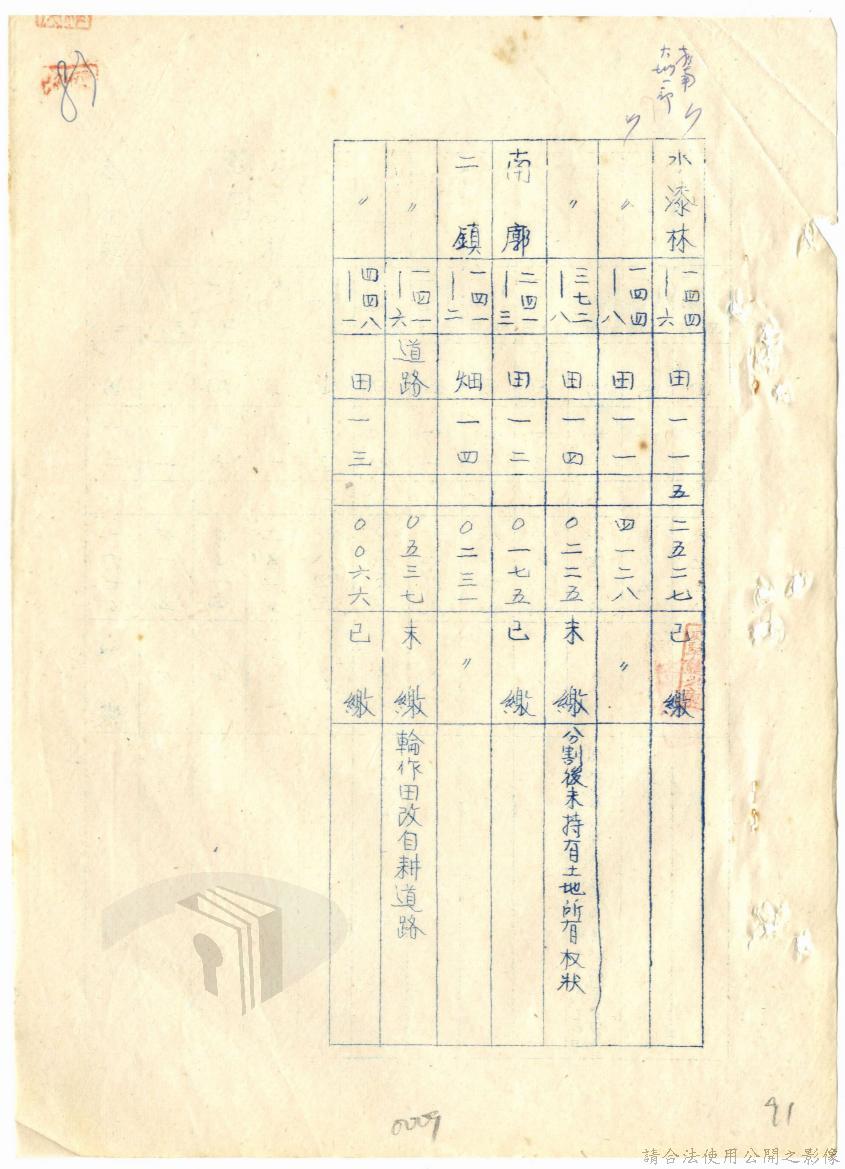 水漆林 一四四―六 田 一一五 二五二七 已繳
〃 一四四―八 田 一一 四一二八 〃
〃 三七二―八 田 一四 〇二二五 未繳 分割後未持有土地所有权狀
南廓 二四一―三 田 一二 〇一七五 已繳
二鎮 一四一―二 畑 一四 〇二三一 〃
〃 一四一―六 道路 〇五三七 未繳 輪作田改自耕道路
〃 四四八―一 田 一三 〇〇六六 已繳
0009
91
請合法使用公開之影像